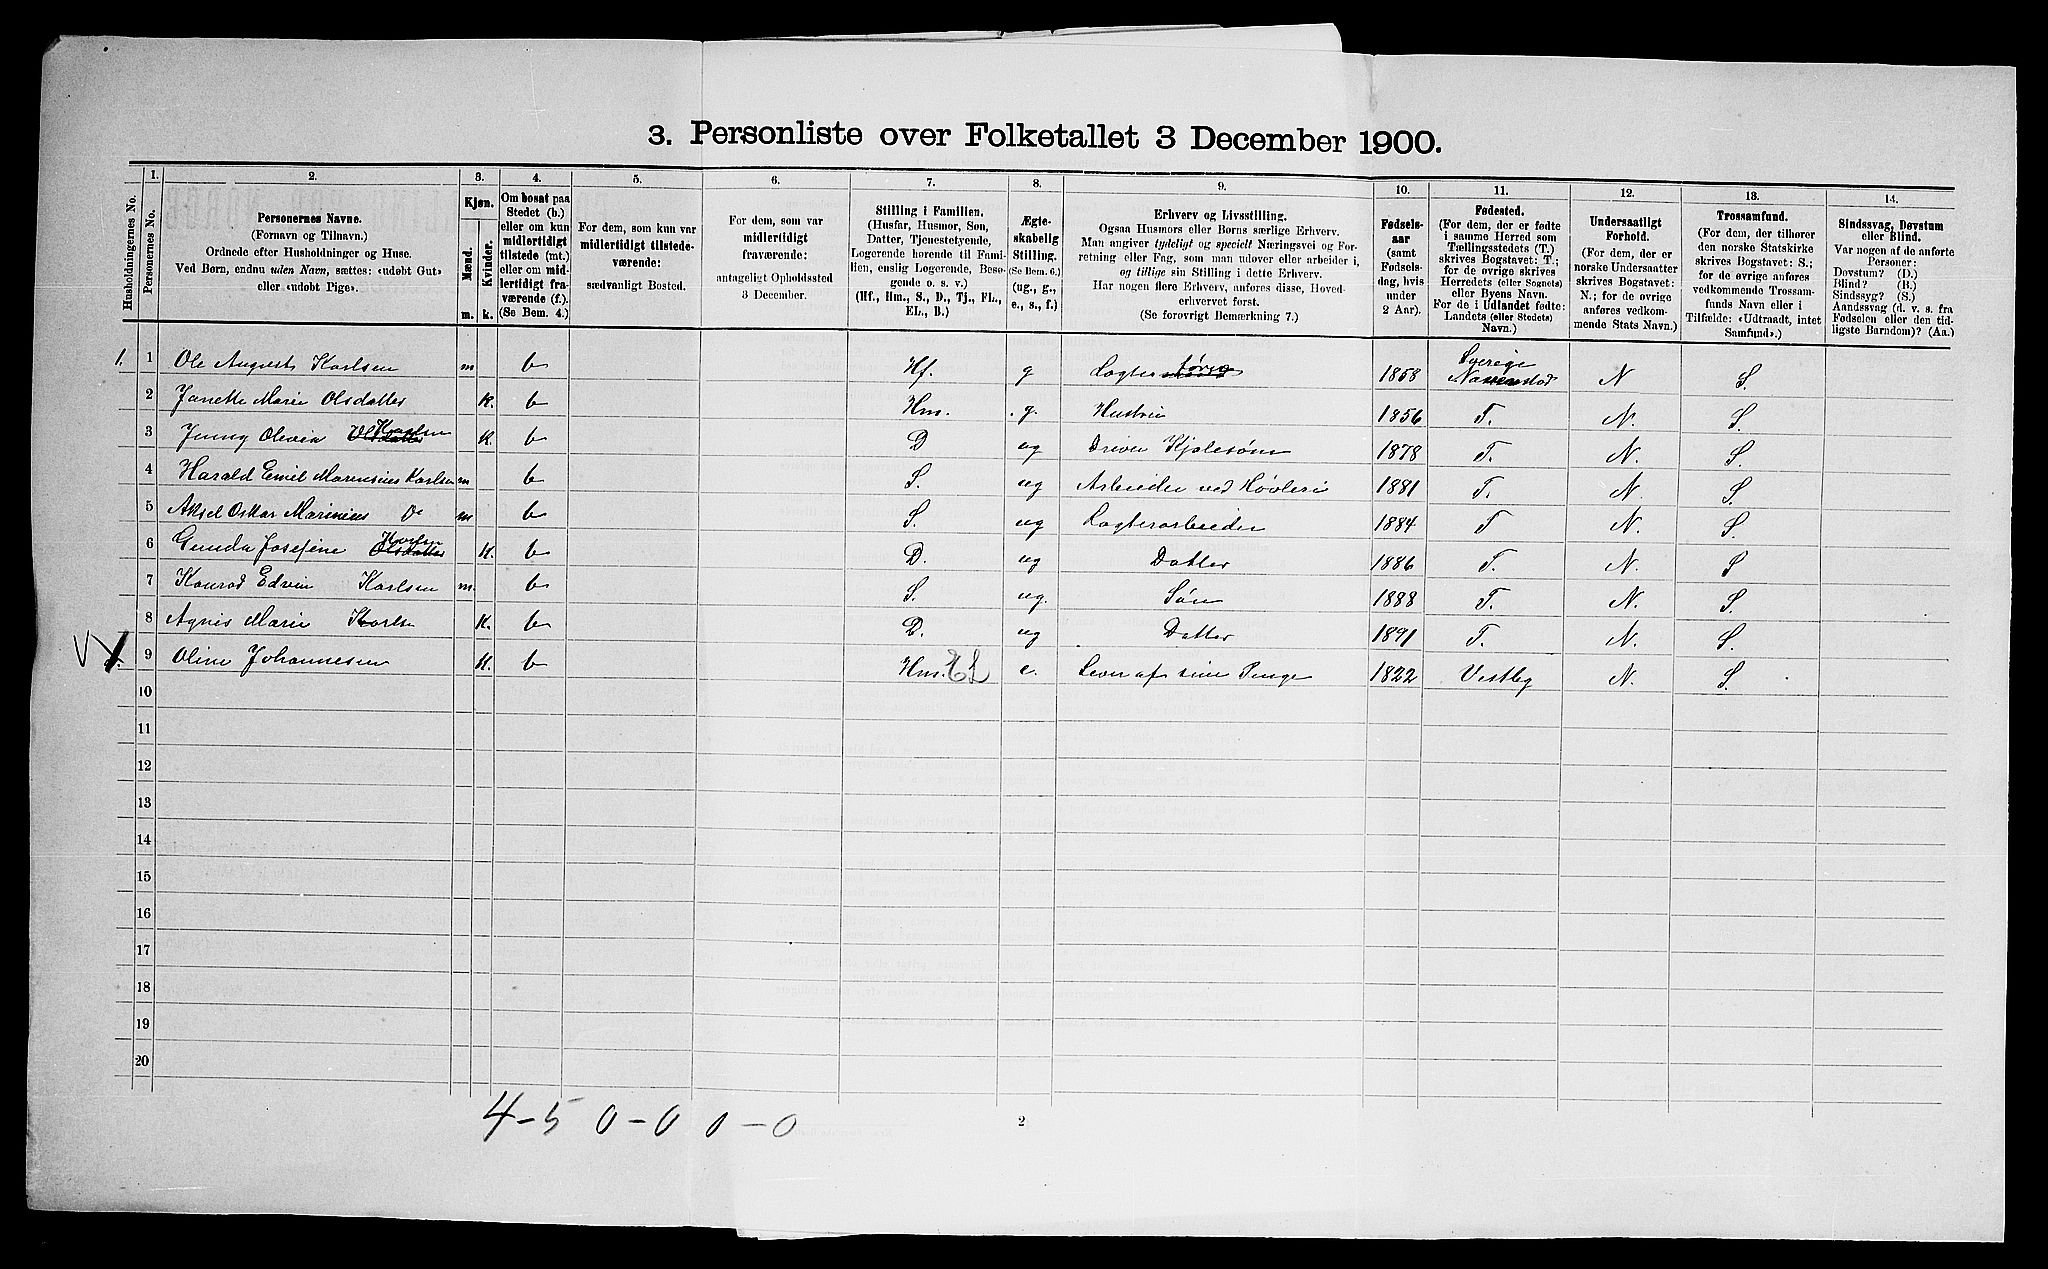 3. Personliste over Folketallet 3 December 1900.
Husholdningernes No.
1.
Personernes No.
2.
Personernes Navne.
(Fornavn og Tilnavn.)
Ordnede efter Husholdninger og Huse.
Ved Børn, endnu uden Navn, sættes: «udøbt Gut»
eller «udøbt Pige».
3.
Kjøn.
Mænd.
Kvinder.
m. k.
4.
Om bosat paa
Stedet (b.)
eller om kun
midlertidigt
tilstede (mt.)
eller om mid-
lertidigt fra-
værende (f.).
(Se Bem. 4.)
5.
For dem, som kun var
midlertidigt tilstede-
værende:
sædvanligt Bosted.
6.
For dem, som var
midlertidigt
fraværende:
antageligt Opholdssted
3 December.
7.
Stilling i Familien.
(Husfar, Husmor, Søn,
Datter, Tjenestetyende,
Logerende hørende til Fami-
lien, enslig Logerende, Besø-
gende o. s. v.)
(Hf., Hm., S., D., Tj., FL.,
EL., B.)
8.
Ægte-
skabelig
Stilling.
(Se Bem. 6.)
(ug., g.,
e., s., f.)
9.
Erhverv og Livsstilling.
Ogsaa Husmors eller Børns særlige Erhverv.
Man angiver tydeligt og specielt Næringsvei og For-
retning eller Fag, som man udøver eller arbeider i,
og tillige sin Stilling i dette Erhverv.
Har nogen flere Erhverv, anføres disse, Hoved-
erhvervet først.
(Se forøvrigt Bemærkning 7.)
10.
Fødsels-
aar
(samt
Fødsels-
dag, hvis
under
2 Aar).
11.
Fødested.
(For dem, der er fødte
i samme Herred som
Tællingsstedet (T.)
skrives Bogstavet: T.;
for de øvrige skrives
Herredets (eller Sognets)
eller Byens Navn.
For de i Udlandet fødte:
Landets (eller Stedets)
Navn.)
12.
Undersaatligt
Forhold.
(For dem, der er
norske Undersaatter
skrives Bogstavet:
N.; for de øvrige
anføres vedkom-
mende Stats Navn.)
13.
Trossamfund.
(For dem, der tilhører
den norske Statskirke
skrives Bogstavet: S.;
for de øvrige anføres
vedkommende Trossam-
funds Navn eller i
Tilfælde: «Udtraadt, intet
Samfund».)
14.
Sindssvag, Døvstum
eller Blind.
Var nogen af de anførte
Personer:
Døvstum? (D.)
Blind? (B.)
Sindssyg? (S.)
Aandssvag (d. v. s. fra
Fødselen eller den tid-
ligste Barndom)? (Aa.)
1. 1 Ole August Karlsen m b Hf. g 1858 Sverige N S.
2 Janette Marie Olsdatter k. b Hm. g. Hustru 1856 T. N. S.
3 Jenny Olevia Olsdatter Karlsen k. b D ug Driver Kjolesøm 1878 T. N. S.
4 Harald Emil Marensius Karlsen m b S. ug Arbeider ved Høvleri 1881 T. N. S.
5 Aksel Oskar Marinius Do m b S. ug Lagterarbeider 1884 T N. S.
6 Gunda Josefine Olsdatter Karlsen k. b D. ug Datter 1886 T. N. S
7 Konrad Edvin Karlsen m. b S. ug. Søn 1888 T. N. S.
8 Agnes Marie Karlsn k. b D. ug Datter 1891 T. N. S.
9 Oline Johannesen k. b Hm. EL e. Lever af sine Penge 1822 Vestby N. S.
10
11
12
13
14
15
16
17
18
19
20
4-5 0-0 0-0
2